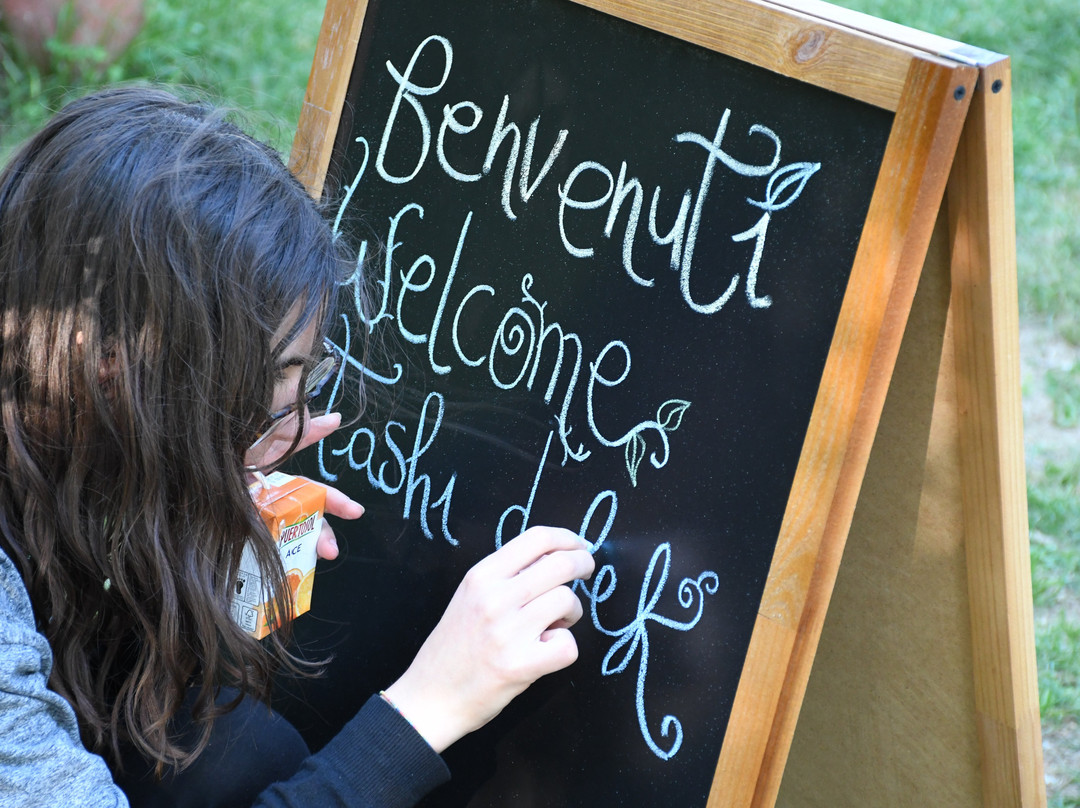 Benvenuti
Welcome
Tashi delek
PUERTOSOL
ACE